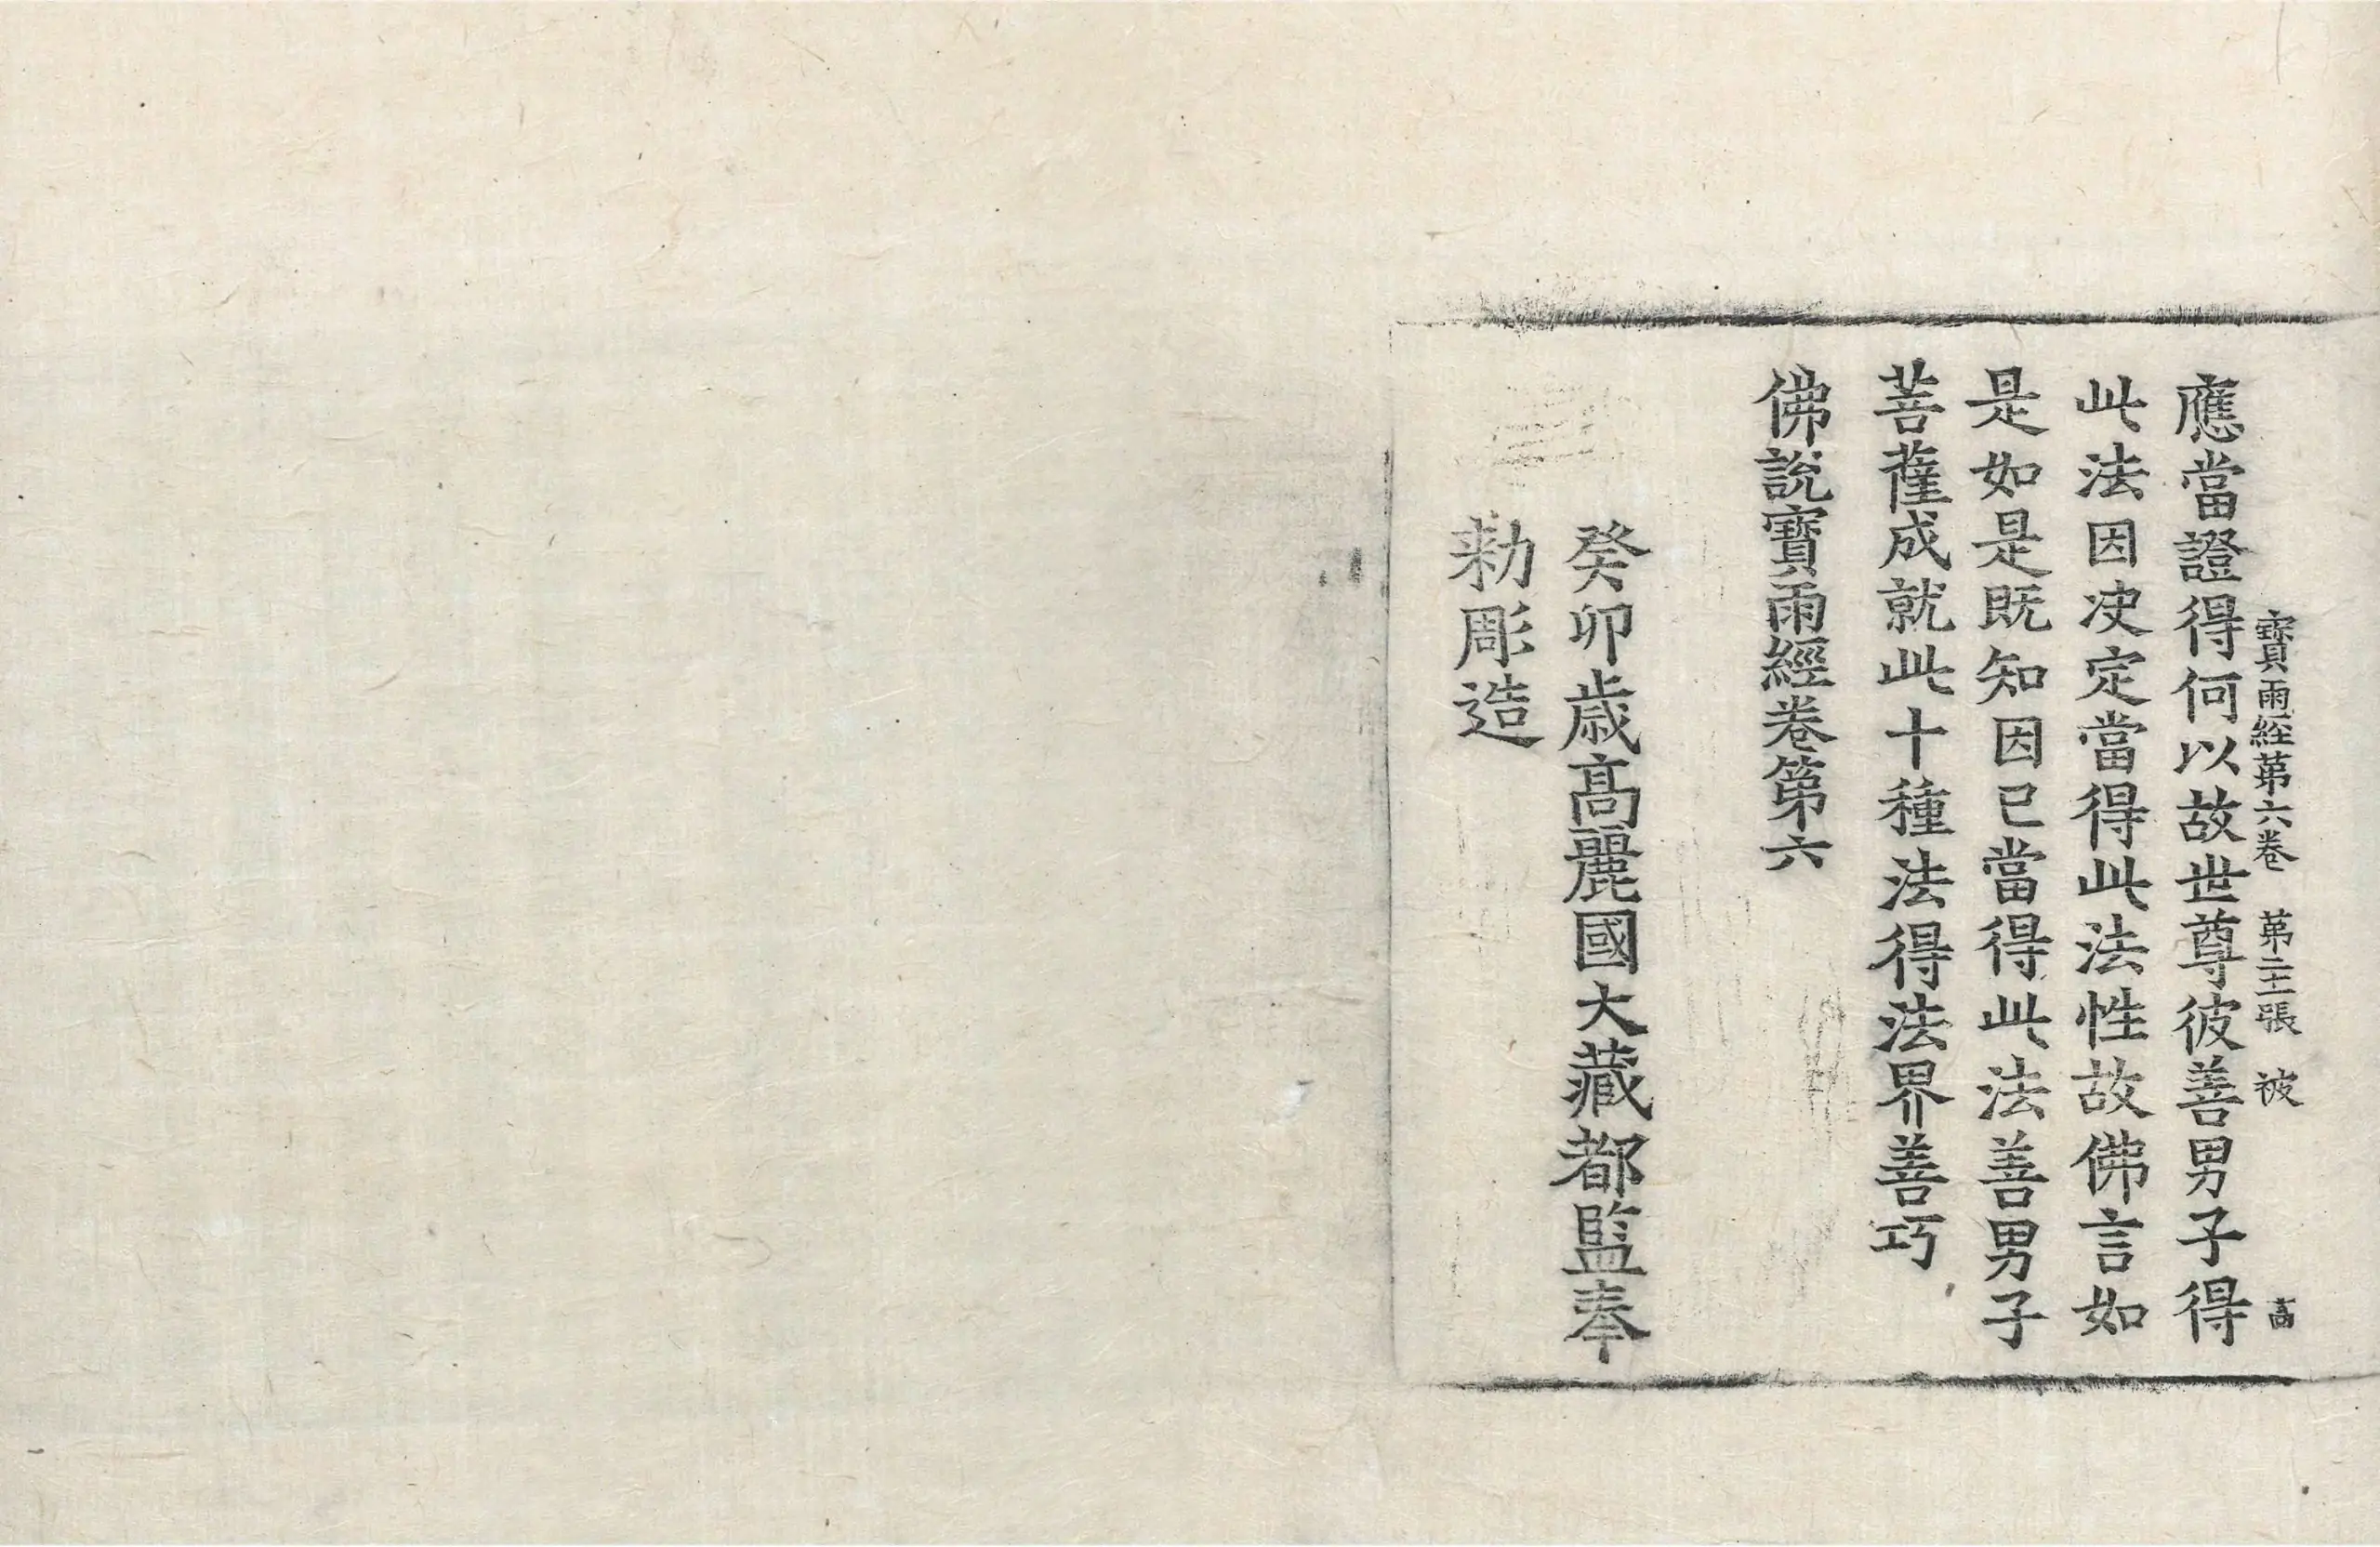 寶雨經第六卷　第二十一張　被　高
應當證得何以故世尊彼善男子得
此法因决定當得此法性故佛言如
是如是既知因已當得此法善男子
菩薩成就此十種法得法界善巧
佛說寶雨經卷第六
癸卯歲高麗國大藏都監奉
勑彫造